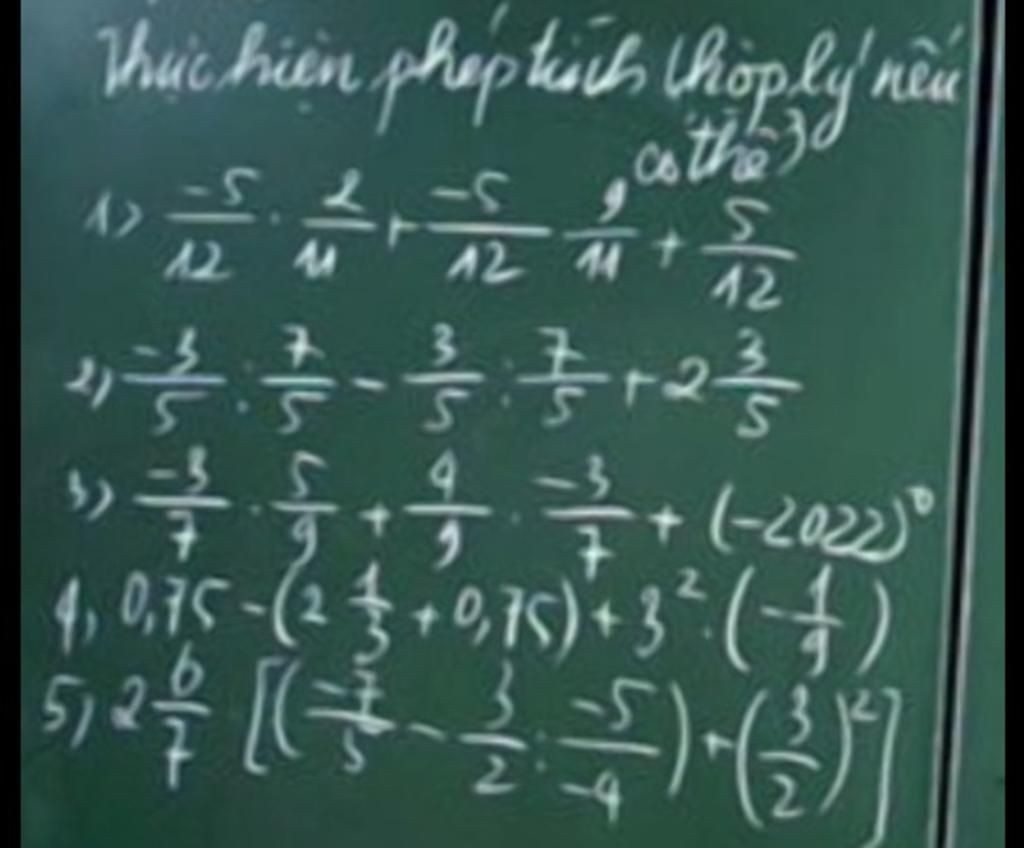 Thực hiện phép tính (hợp lý nếu
có thể)
1) \frac{-5}{12} \cdot \frac{2}{11} + \frac{-5}{12} \cdot \frac{9}{11} + \frac{5}{12}
2) \frac{-3}{5} : \frac{7}{5} - \frac{3}{5} : \frac{7}{5} + 2\frac{3}{5}
3) \frac{-3}{7} \cdot \frac{5}{9} + \frac{4}{9} \cdot \frac{-3}{7} + (-2022)^0
4) 0,75 - (2\frac{1}{3} + 0,75) + 3^2 \cdot (-\frac{1}{9})
5) 2\frac{6}{7} [(\frac{-7}{5} - \frac{3}{2} : \frac{-5}{-4}) + (\frac{3}{2})^2]